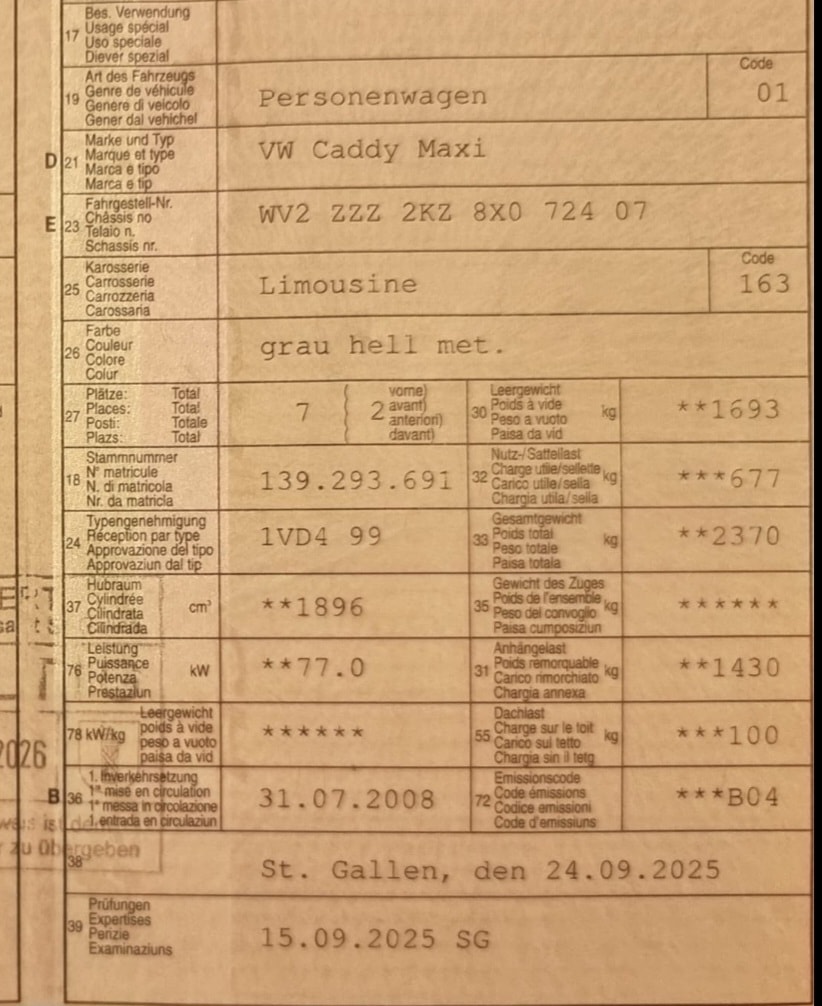 17 Bes. Verwendung
Usage spécial
Uso speciale
Diever spezial
19 Art des Fahrzeugs
Genre de véhicule
Genere di veicolo
Gener dal vehichel
Personenwagen
Code
01
D 21 Marke und Typ
Marque et type
Marca e tipo
Marca e tip
VW Caddy Maxi
E 23 Fahrgestell-Nr.
Châssis no
Telaio n.
Schassis nr.
WV2 ZZZ 2KZ 8X0 724 07
25 Karosserie
Carrosserie
Carrozzeria
Carossaria
Limousine
Code
163
26 Farbe
Couleur
Colore
Colur
grau hell met.
27 Plätze: Total
Places: Total
Posti: Totale
Plazs: Total
7 ( 2
vorne)
avant)
anteriori)
davant)
30 Leergewicht
Poids à vide
Peso a vuoto
Paisa da vid
kg
**1693
18 Stammnummer
N° matricule
N. di matricola
Nr. da matricla
139.293.691
32 Nutz-/Sattellast
Charge utile/sellette
Carico utile/sella
Chargia utila/sella
kg
***677
24 Typengenehmigung
Réception par type
Approvazione del tipo
Approvaziun dal tip
1VD4 99
33 Gesamtgewicht
Poids total
Peso totale
Paisa totala
kg
**2370
37 Hubraum
Cylindrée
Cilindrata
Cilindrada
cm³
**1896
35 Gewicht des Zuges
Poids de l'ensemble
Peso del convoglio
Paisa cumposiziun
kg
******
76 Leistung
Puissance
Potenza
Prestaziun
kW
**77.0
31 Anhängelast
Poids remorquable
Carico rimorchiato
Chargia annexa
kg
**1430
78 kW/kg
Leergewicht
poids à vide
peso a vuoto
paisa da vid
******
55 Dachlast
Charge sur le toit
Carico sul tetto
Chargia sin il tetg
kg
***100
2026
B 36 1. Inverkehrsetzung
1re mise en circulation
1a messa in circolazione
1. entrada en circulaziun
31.07.2008
72 Emissionscode
Code émissions
Codice emissioni
Code d'emissiuns
***B04
zu übergeben
38
St. Gallen, den 24.09.2025
39 Prüfungen
Expertises
Perizie
Examinaziuns
15.09.2025 SG